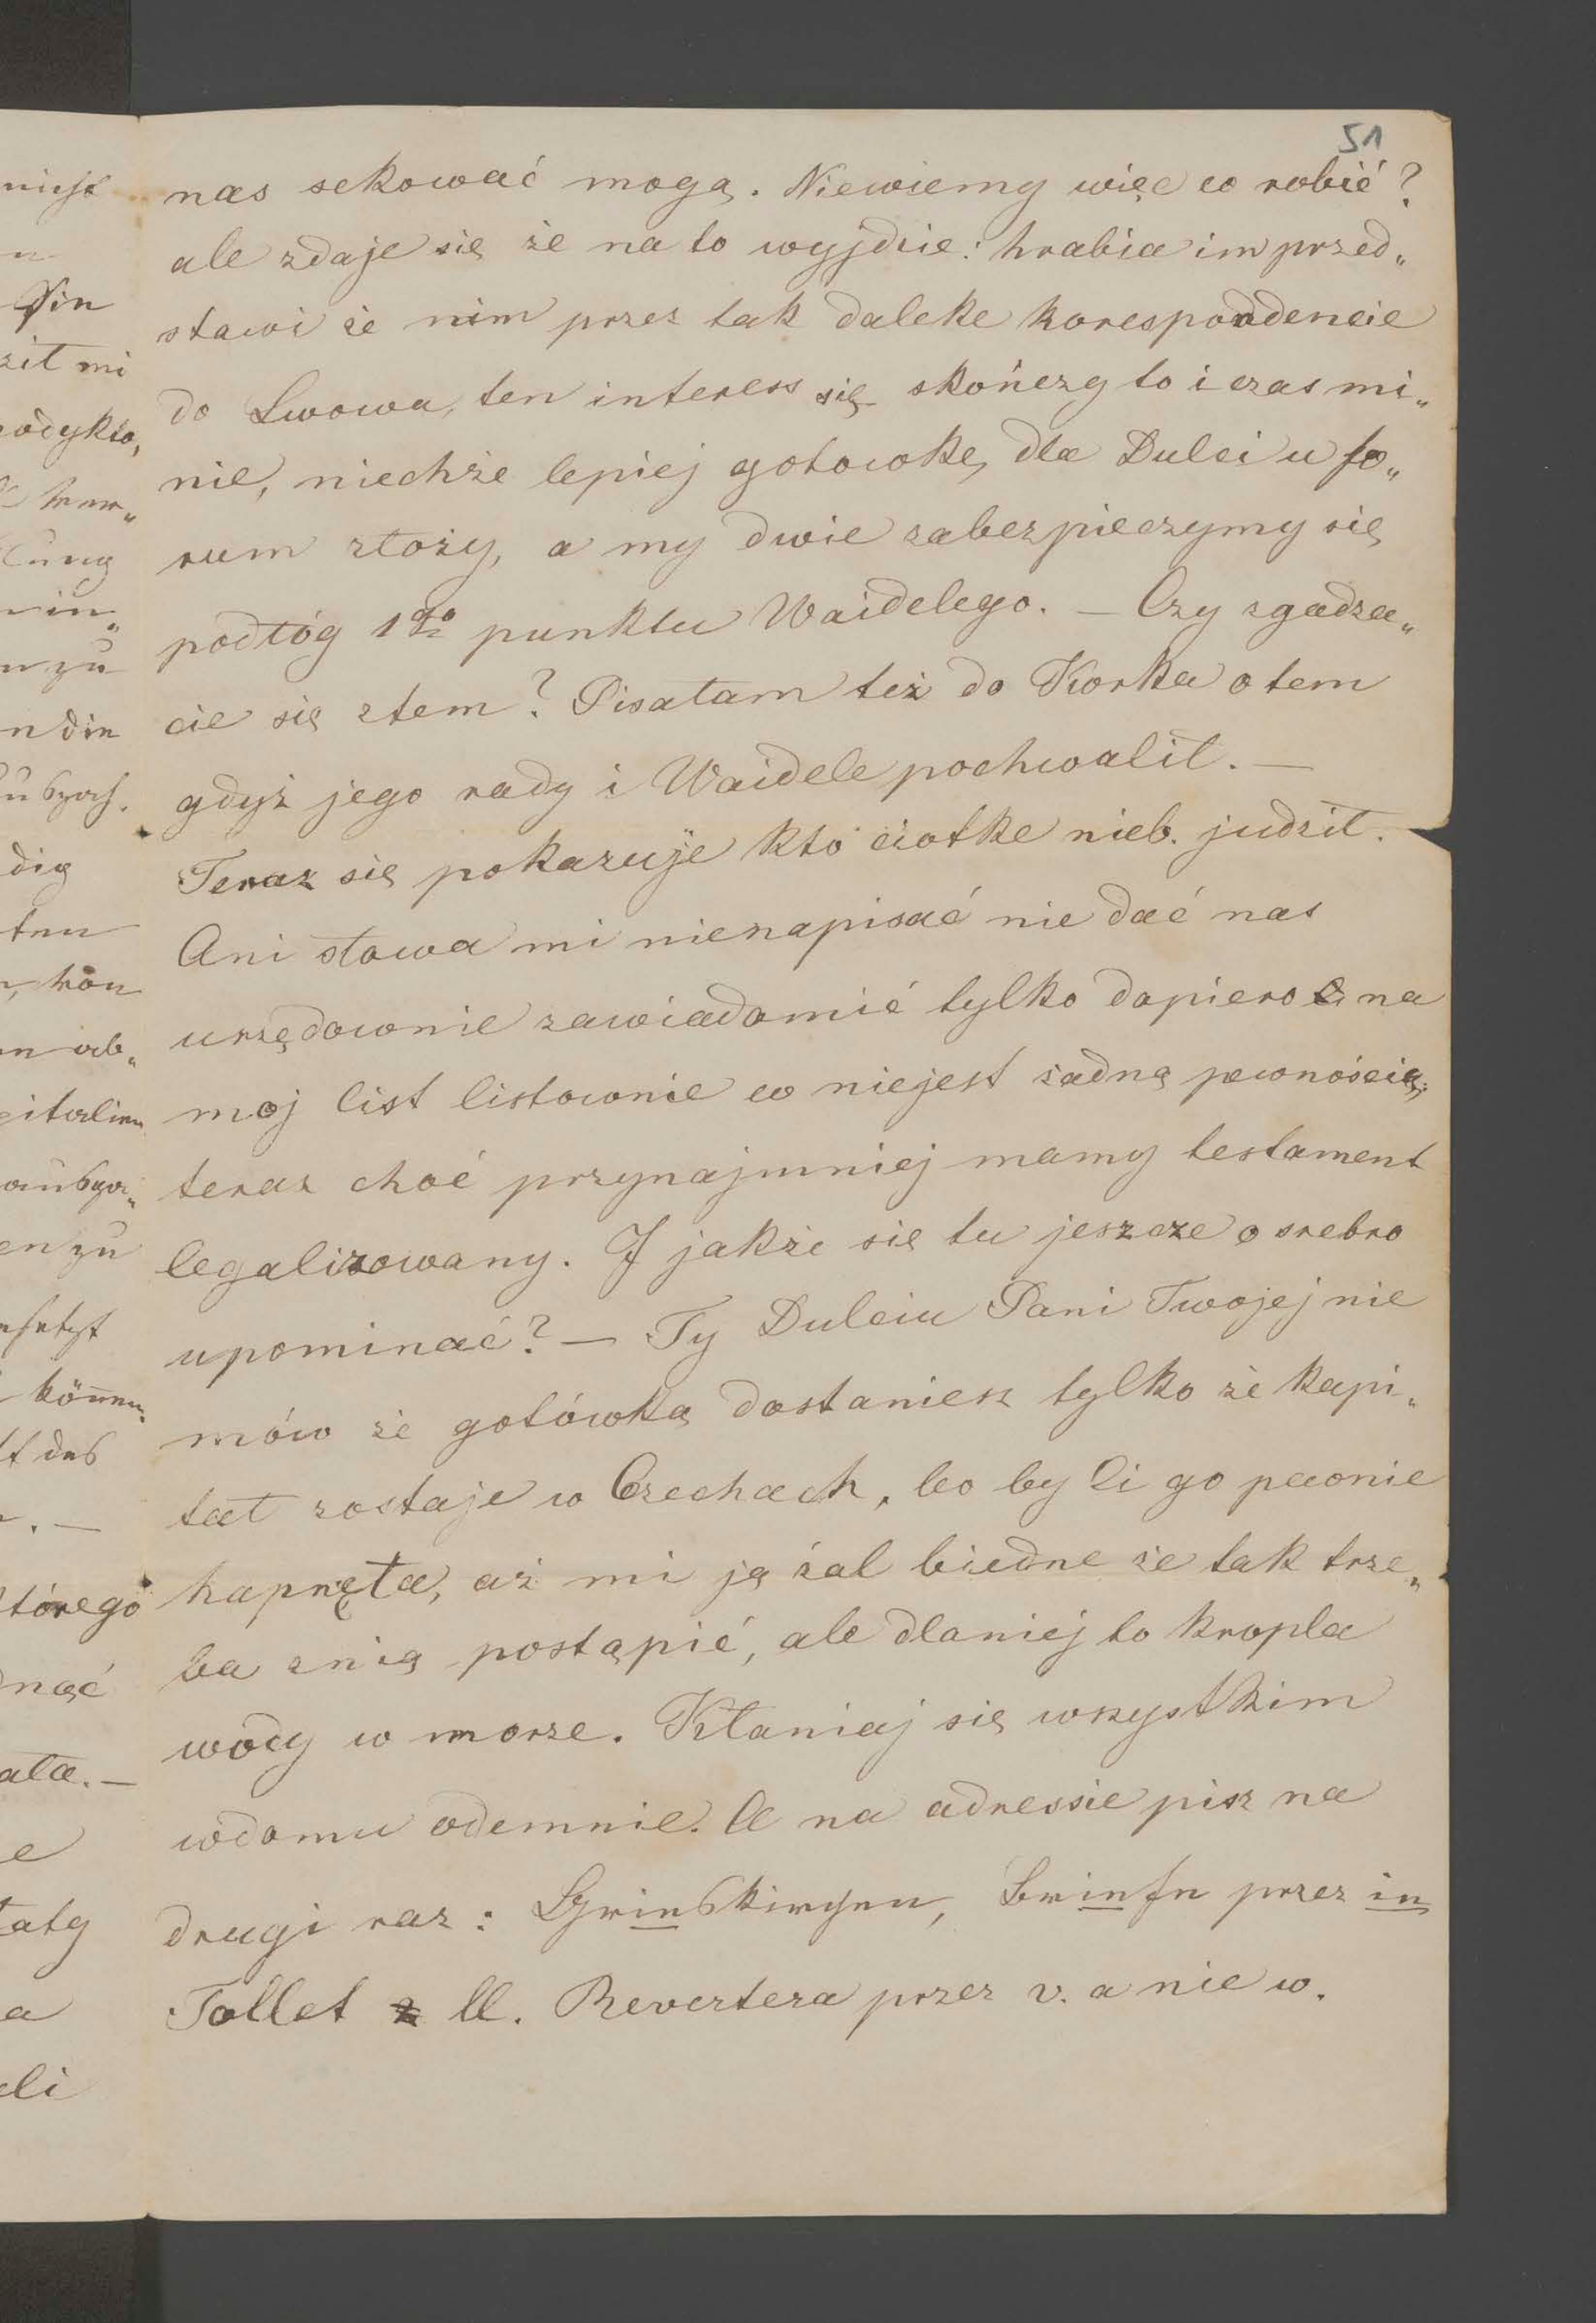 51
nas sekować mogą. Niewiemy więc co robić?
ale zdaje się że na to wyjdzie: hrabia im przed„
stawi że nim przez tak daleke korespondencie
do Lwowa, ten interess się skończy to i czas mi„
nie, niechże lepiej gotowkę, dla Dulci u fo„
rum złoży, a my dwie zabezpieczymy się
podłóg 1go punktu Waidelego. — Czy zgadza„
cie się ztem? Pisałam też do Korka o tem
gdyż jego rady i Waidele pochwalił. —
Teraz się pokazuje kto ciotke nieb. judził.
Ani słowa mi nienapisać nie dać nas
urzędownie zawiadomić tylko dopiero na
moj list listownie co niejest żadną pewnością;
teraz choć przynajmniej mamy testament
legalizowany. I jakże się tu jeszcze o srebro
upominać? — Ty Dulciu Pani Twojej nie
mów że gotówką dostaniesz tylko że kapi„
tał zostaje w Czechach, bo by Ci go pewnie
hapnęła, aż mi ją żal biedne że tak trze„
ba znią postąpić, ale dlaniej to kropla
wody w morze. Kłaniaj się wszystkim
wdomu odemnie. A na adressie pisz na
drugi raz: przez in
Tollet 2 ll. Revertera przez v. a nie w.